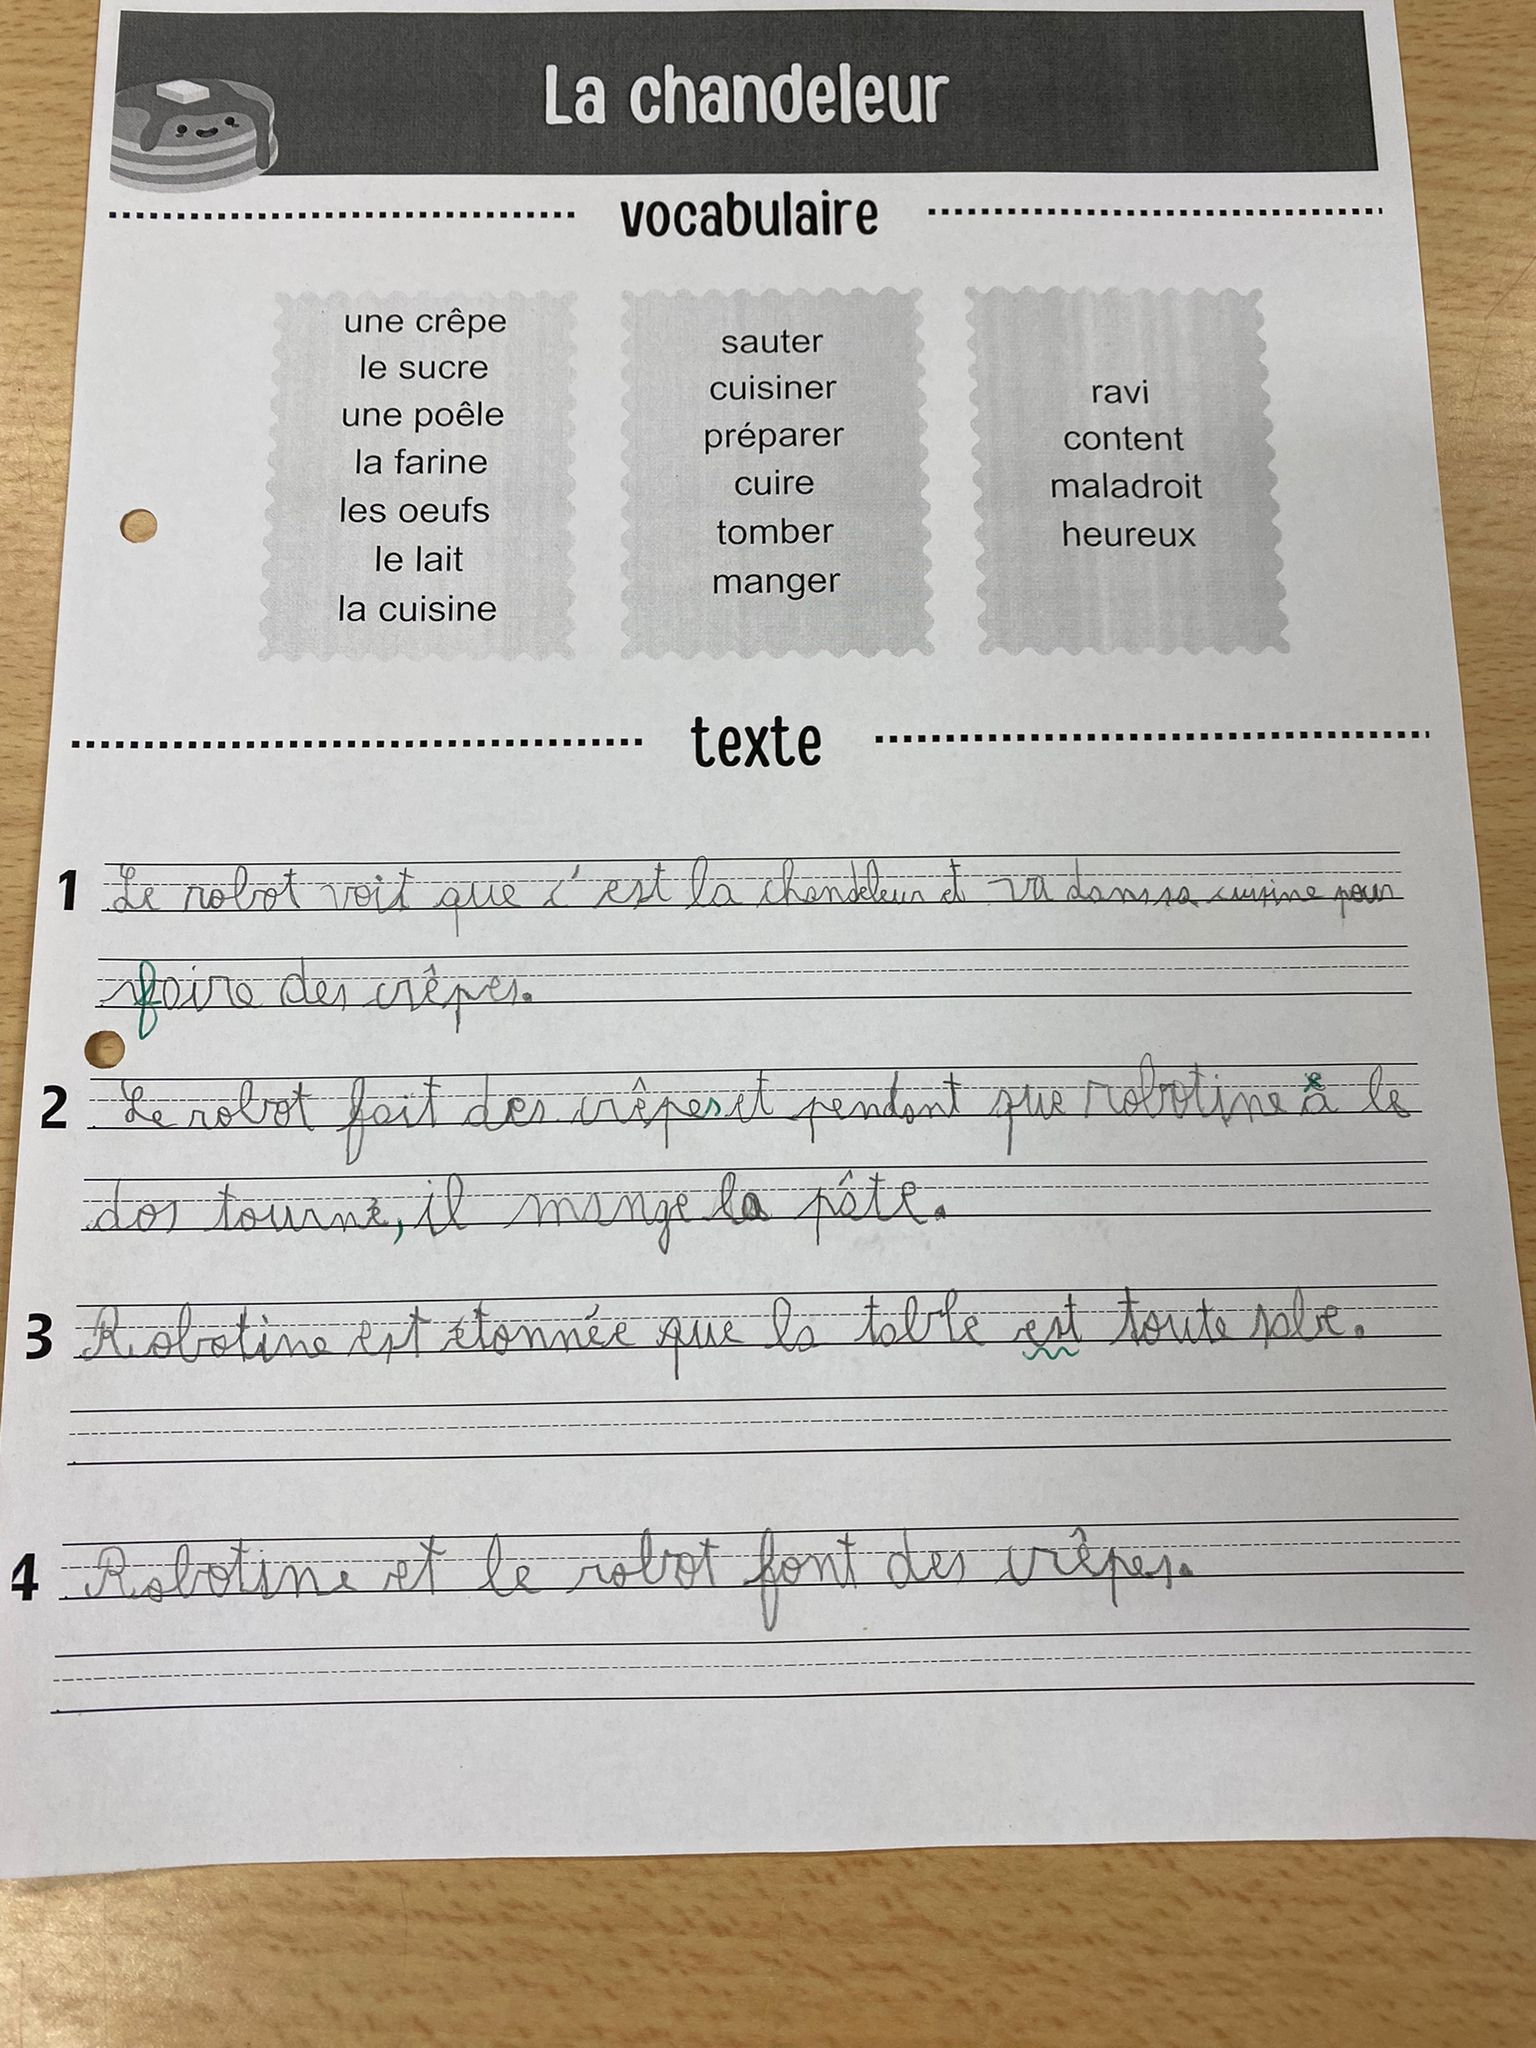 La chandeleur
vocabulaire
une crêpe
le sucre
une poêle
la farine
les oeufs
le lait
la cuisine
sauter
cuisiner
préparer
cuire
tomber
manger
ravi
content
maladroit
heureux
texte
1 Le robot voit que c'est la chandeleur et va dans sa cuisine pour
faire des crêpes.
2 Le robot fait des crêpes et pendant que robotine à le
dos tourné, il mange la pâte.
3 Robotine est étonnée que la table est toute sale.
4 Robotine et le robot font des crêpes.